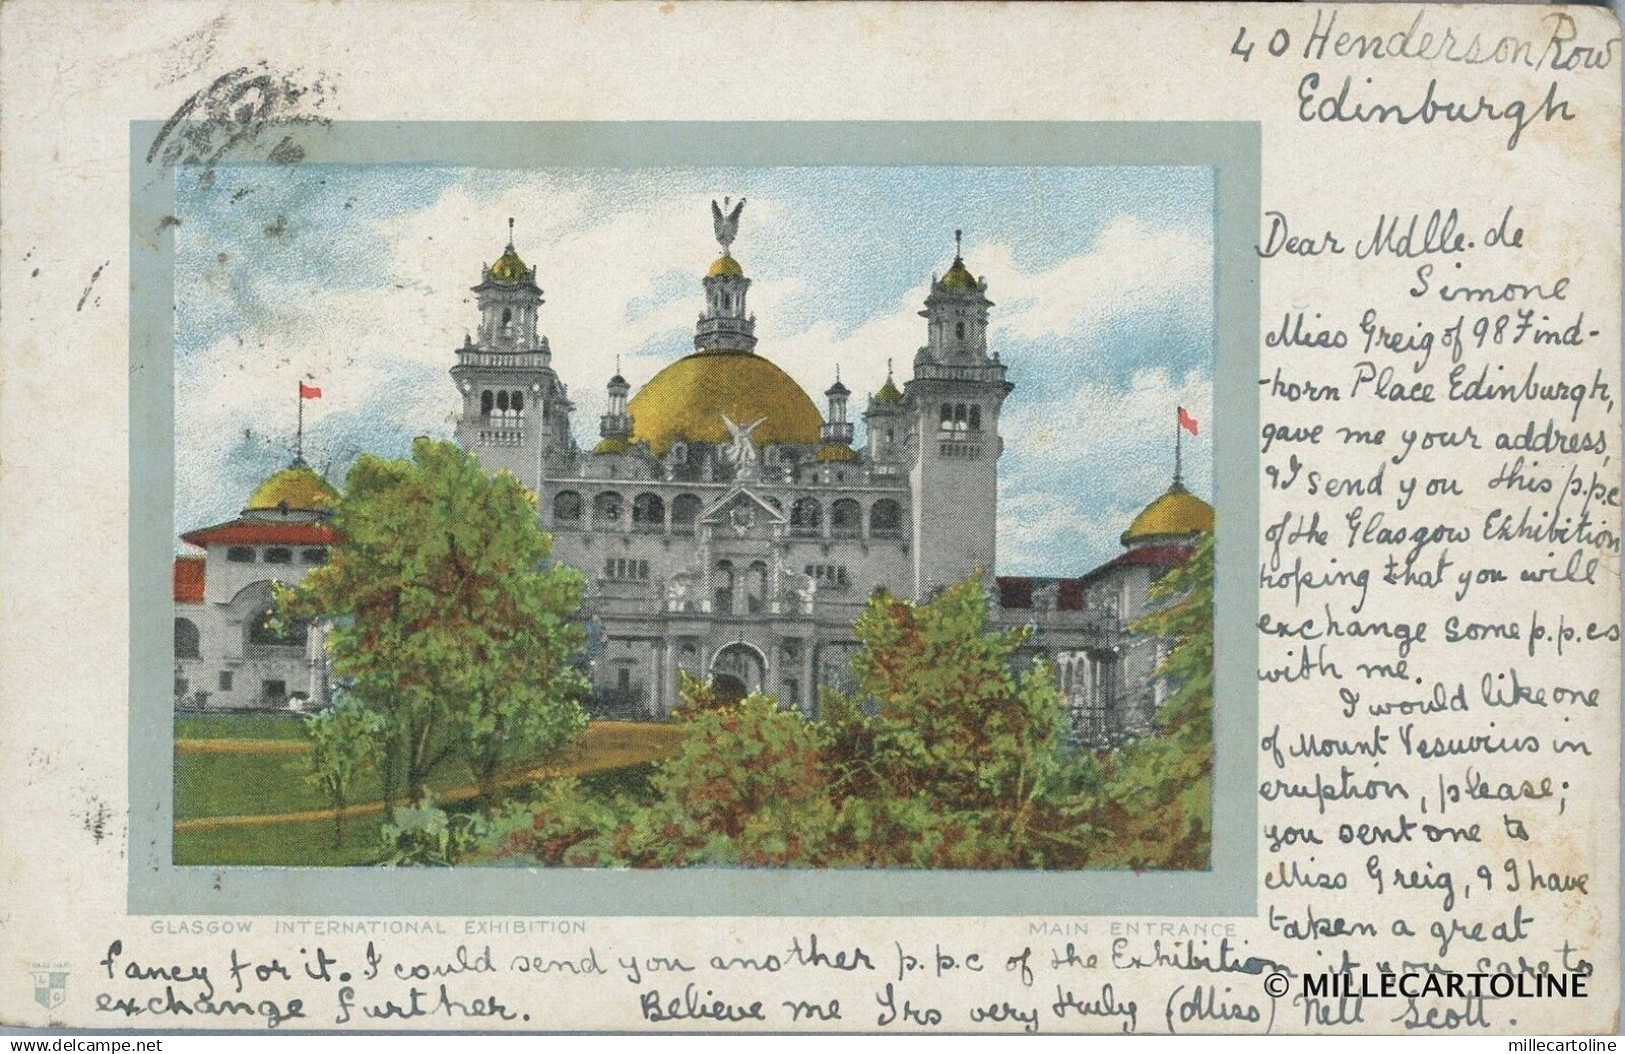 40 Henderson Row
Edinburgh
Dear Mdlle. de
Simone
Miss Greig of 98 Find-
-horn Place Edinburgh,
gave me your address,
& I send you this p.p.c
of the Glasgow Exhibition
hoping that you will
exchange some p.p.cs
with me.
I would like one
of Mount Vesuvius in
eruption, please;
you sent one to
Miss Greig, & I have
taken a great
GLASGOW INTERNATIONAL EXHIBITION
MAIN ENTRANCE
fancy for it. I could send you another p.p.c of the Exhibition if you care to
exchange further. Believe me Yrs very truly (Miss) Nell Scott.
TRADE MARK
L G
© MILLECARTOLINE
delcampe.net
millecartoline